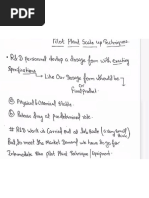 Pilot Plant Scale up Techniques
* R&D personnel develop a dosage form with exciting
Specifications
→ Like Our Dosage form should be
Functional
ⓐ Physical & Chemical Stable
ⓑ Release drug at predetermined rate.
* R&D work is Carried out at lab scale
But fo meet the Market Demand we have to go for
Intermediate Size Pilot Plant Technique/Equipment.